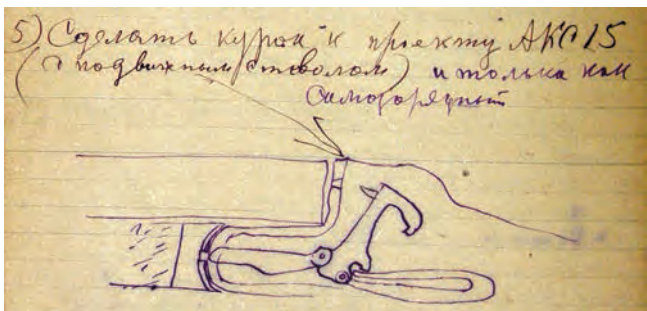 5) Сделать курок к проекту АКС15
(с подвижным стволом) и только как
самозарядный